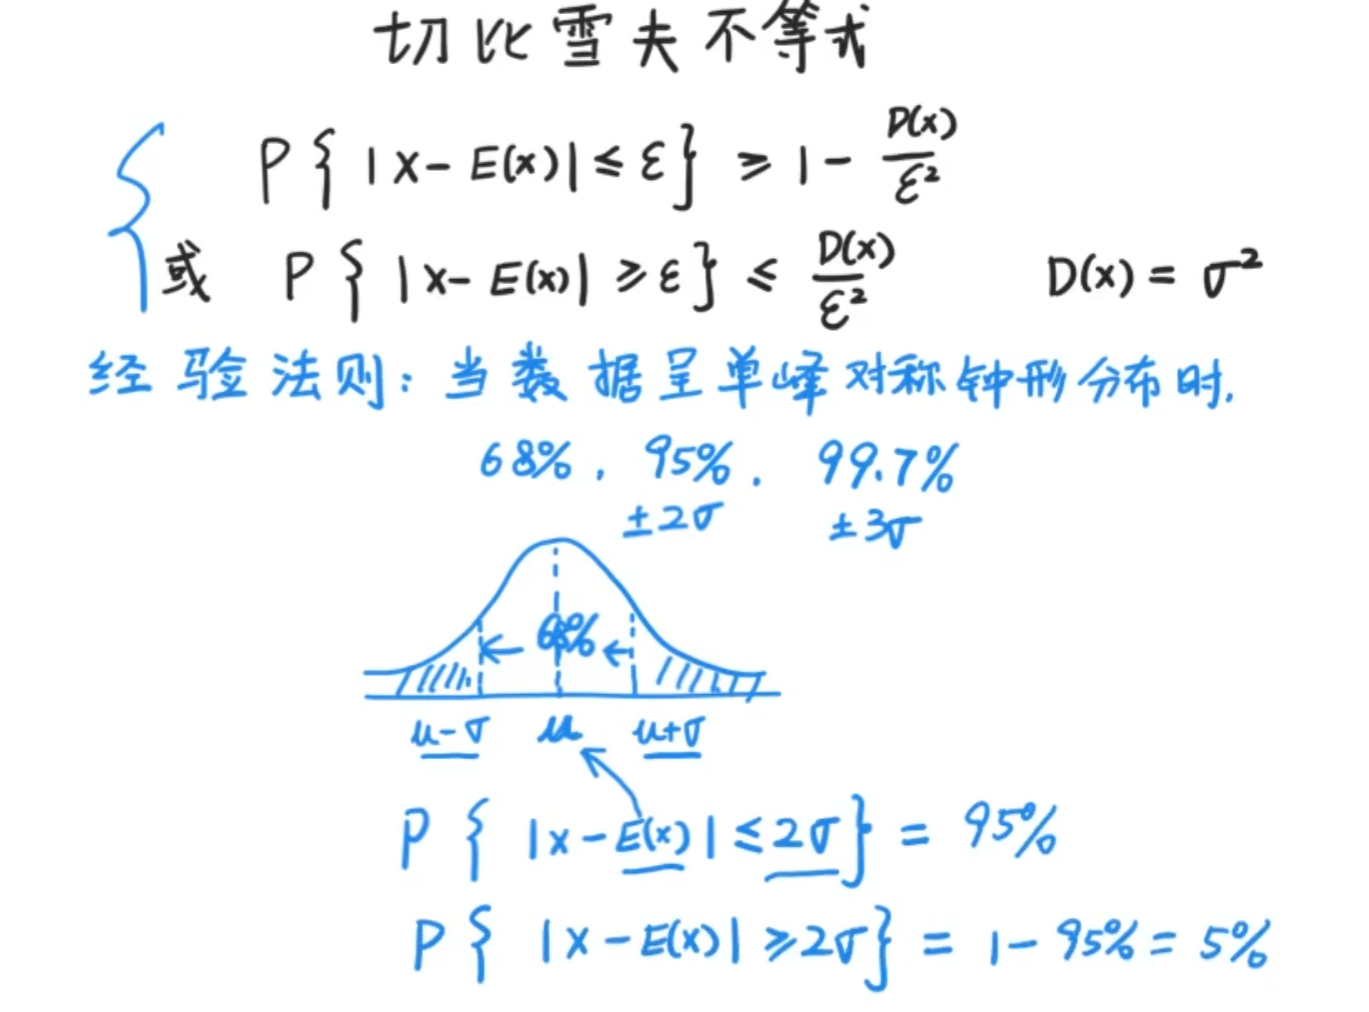 切比雪夫不等式
P{|X-E(x)|≤ε} ≥ 1-D(x)/ε²
或 P{|X-E(x)|≥ε} ≤ D(x)/ε² D(x)=σ²
经验法则:当数据呈单峰对称钟形分布时.
68%. 95%. 99.7%
±2σ ±3σ
68%
u-σ u u+σ
P{|x-E(x)|≤2σ} = 95%
P{|X-E(x)|≥2σ} = 1-95%=5%